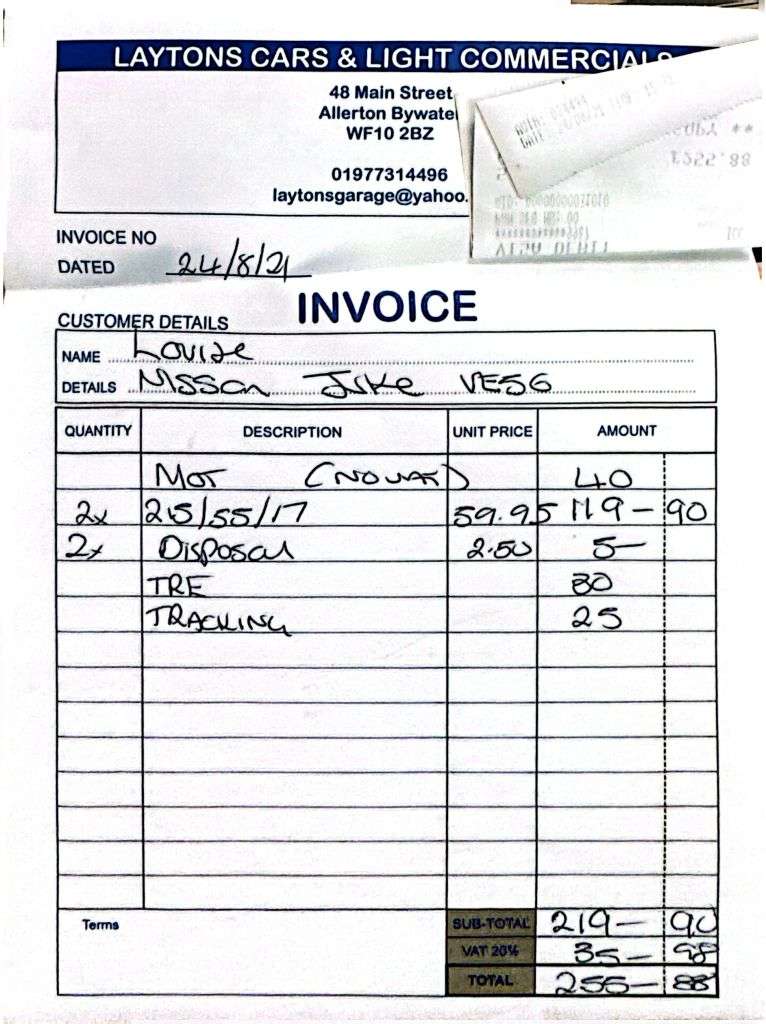 LAYTONS CARS & LIGHT COMMERCIALS
48 Main Street
Allerton Bywate
WF10 2BZ
01977314496
laytonsgarage@yahoo.
£255.88
VISA DEBIT
INVOICE NO
DATED 24/8/21
INVOICE
CUSTOMER DETAILS
NAME Louise
DETAILS Nissan Juke VE56
QUANTITY DESCRIPTION UNIT PRICE AMOUNT
MOT (NO VAT) 40
2x 215/55/17 59.95 119-90
2x Disposal 2.50 5-
TRE 30
TRACKING 25
Terms
SUB-TOTAL 219-90
VAT 20% 35-98
TOTAL 255-88